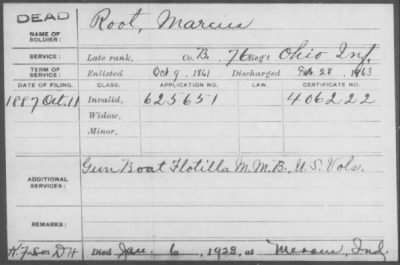 DEAD
NAME OF SOLDIER: Root, Marcus
SERVICE: Late rank, Co. B. 76 Regt Ohio Inf.
TERM OF SERVICE: Enlisted Oct 9, 1861 Discharged Feb. 28, 1863
DATE OF FILING. CLASS. APPLICATION NO. LAW. CERTIFICATE NO.
1887 Oct. 11 Invalid, 625651 406222
Widow,
Minor,
ADDITIONAL SERVICES: Gun Boat Flotilla M.M.B., U.S. Vols.
REMARKS:
Died Jan. 6, 1923, at Merom, Ind.